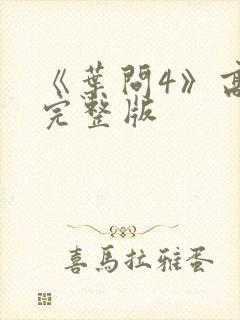 《葉問4》高
完整版
喜馬拉雅蛋